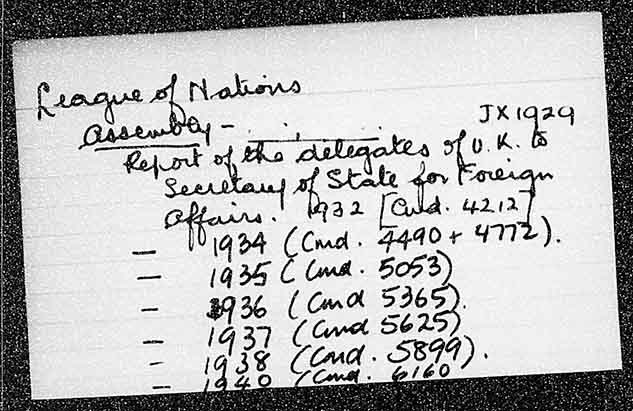 League of Nations
JX1929
Assembly -
Report of the delegates of U.K. to
Secretary of State for Foreign
Affairs. 1932 [Cmd. 4212]
— 1934 (Cmd. 4490 + 4772).
— 1935 (Cmd. 5053)
- 1936 (Cmd 5365).
- 1937 (Cmd 5625)
- 1938 (Cmd. 5899).
- 1940 (Cmd. 6160)